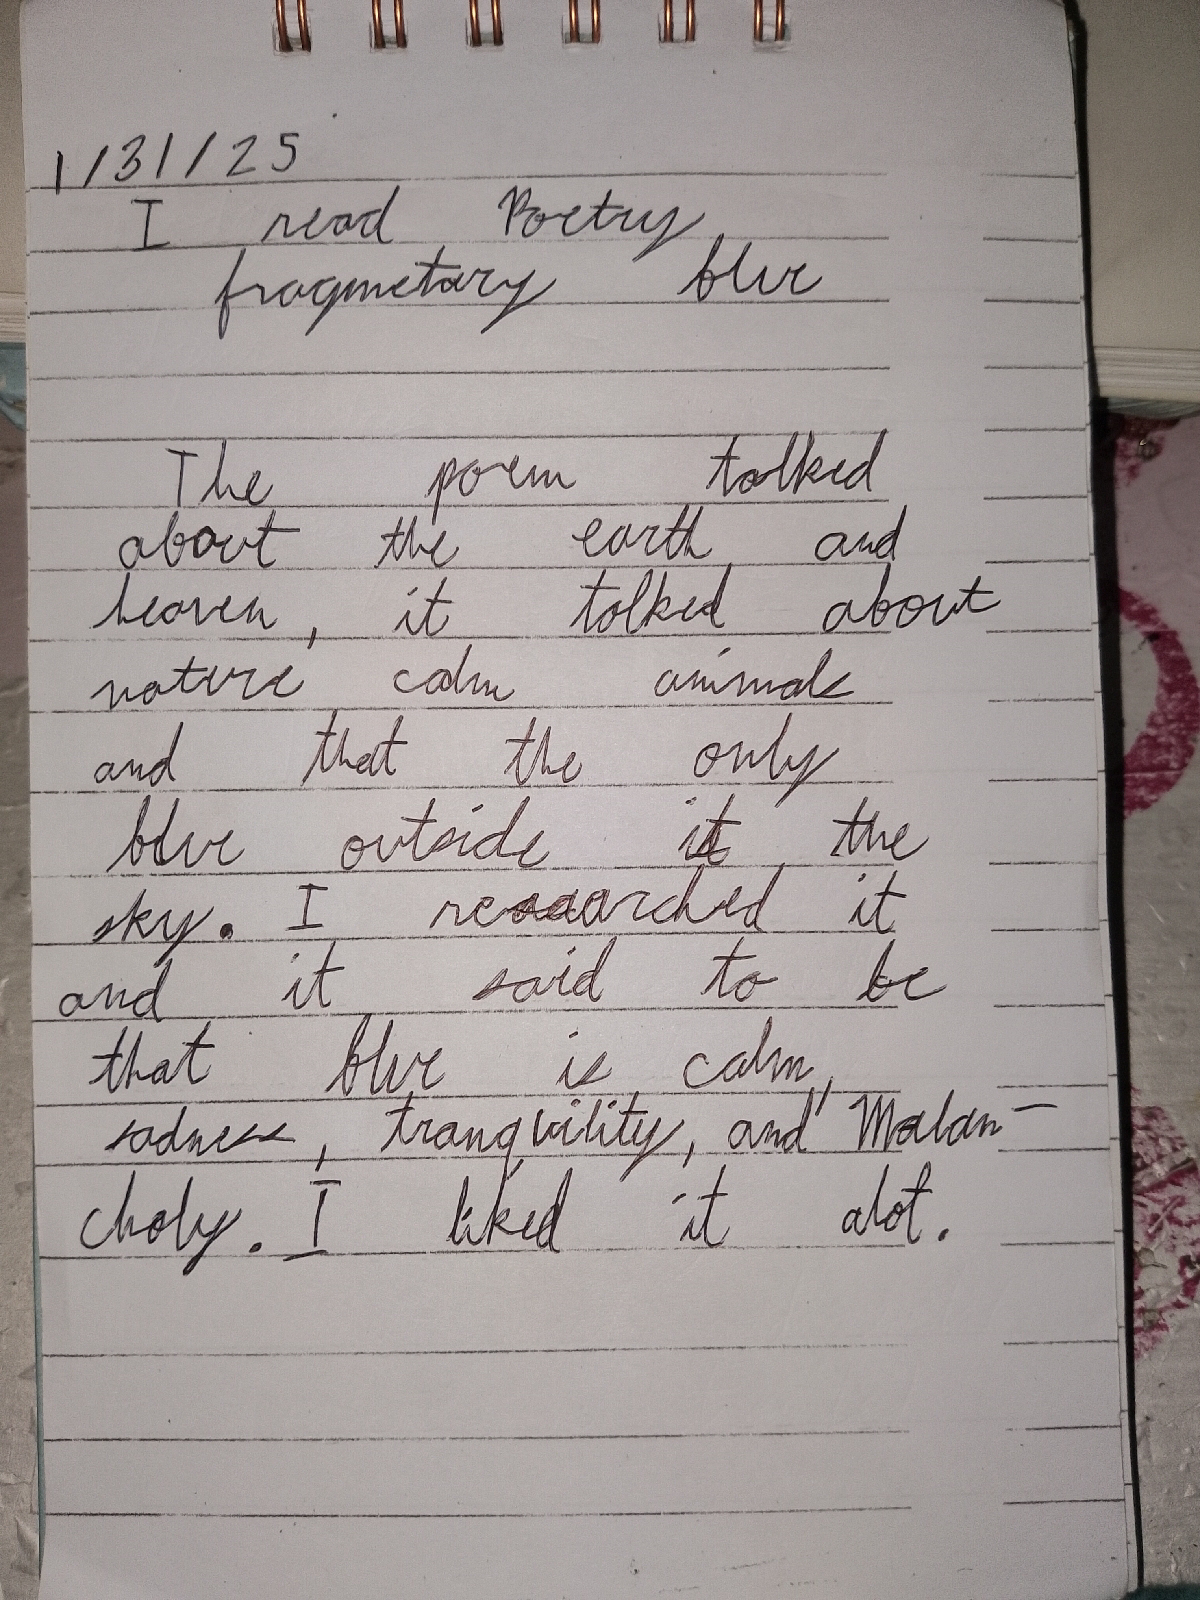 1/31/25
I read Poetry
fragmetary blue
The poem talked
about the earth and
heaven, it talked about
nature calm animals
and that the only
blue outside it the
sky. I researched it
and it said to be
that blue is calm,
sadness, tranquility, and Malan-
choly. I liked it alot.